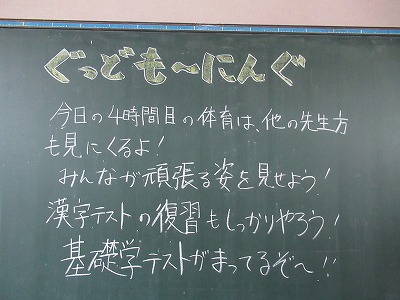 ぐっども〜にんぐ
今日の4時間目の体育は、他の先生方
も見にくるよ!
みんなが頑張る姿を見せよう!
漢字テストの復習もしっかりやろう!
基礎学テストがまってるぞ〜!!